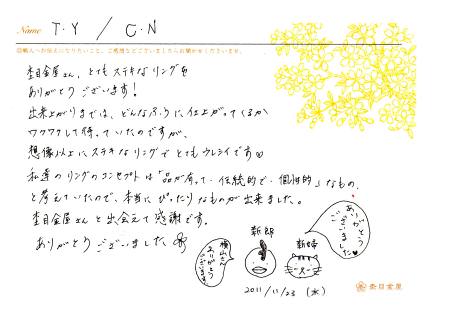 Name T.Y / C.N
杢目金屋さん、とてもステキなリングを
ありがとうございます！
出来上がりまでは、どんなふうに仕上がってくるか
ワクワクして待っていたのですが、
想像以上にステキなリングでとてもウレシイです
私達のリングのコンセプトは「品が有って・伝統的で・個性的」なもの、
と考えていたので、本当にぴったりなものが出来ました。
杢目金屋さんと出会えて感謝です。
ありがとうございました
新郎
新婦
横山さん
ありがとう
ございます。
ありがとう
ございました♥
2011/11/23 (水)
杢目金屋